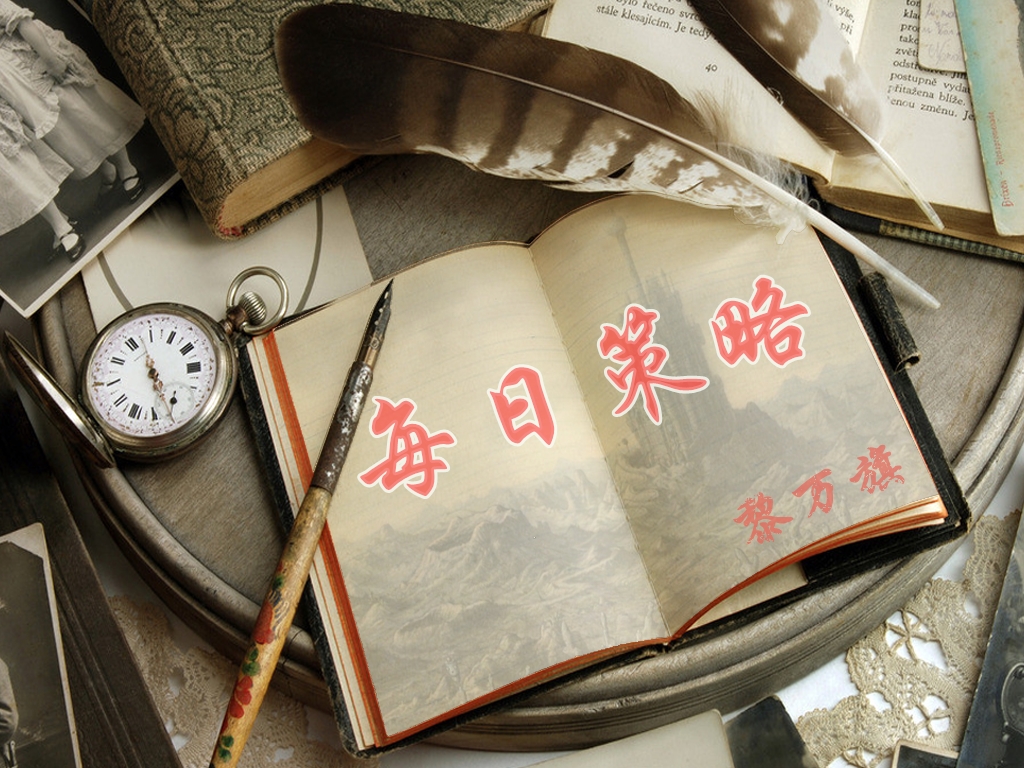 每日策略
黎万旗
bylo řečeno
stále klesajícím. Je tedy
40
výše,
postupně vyda
přitažena blíže.
enou změnu. Je